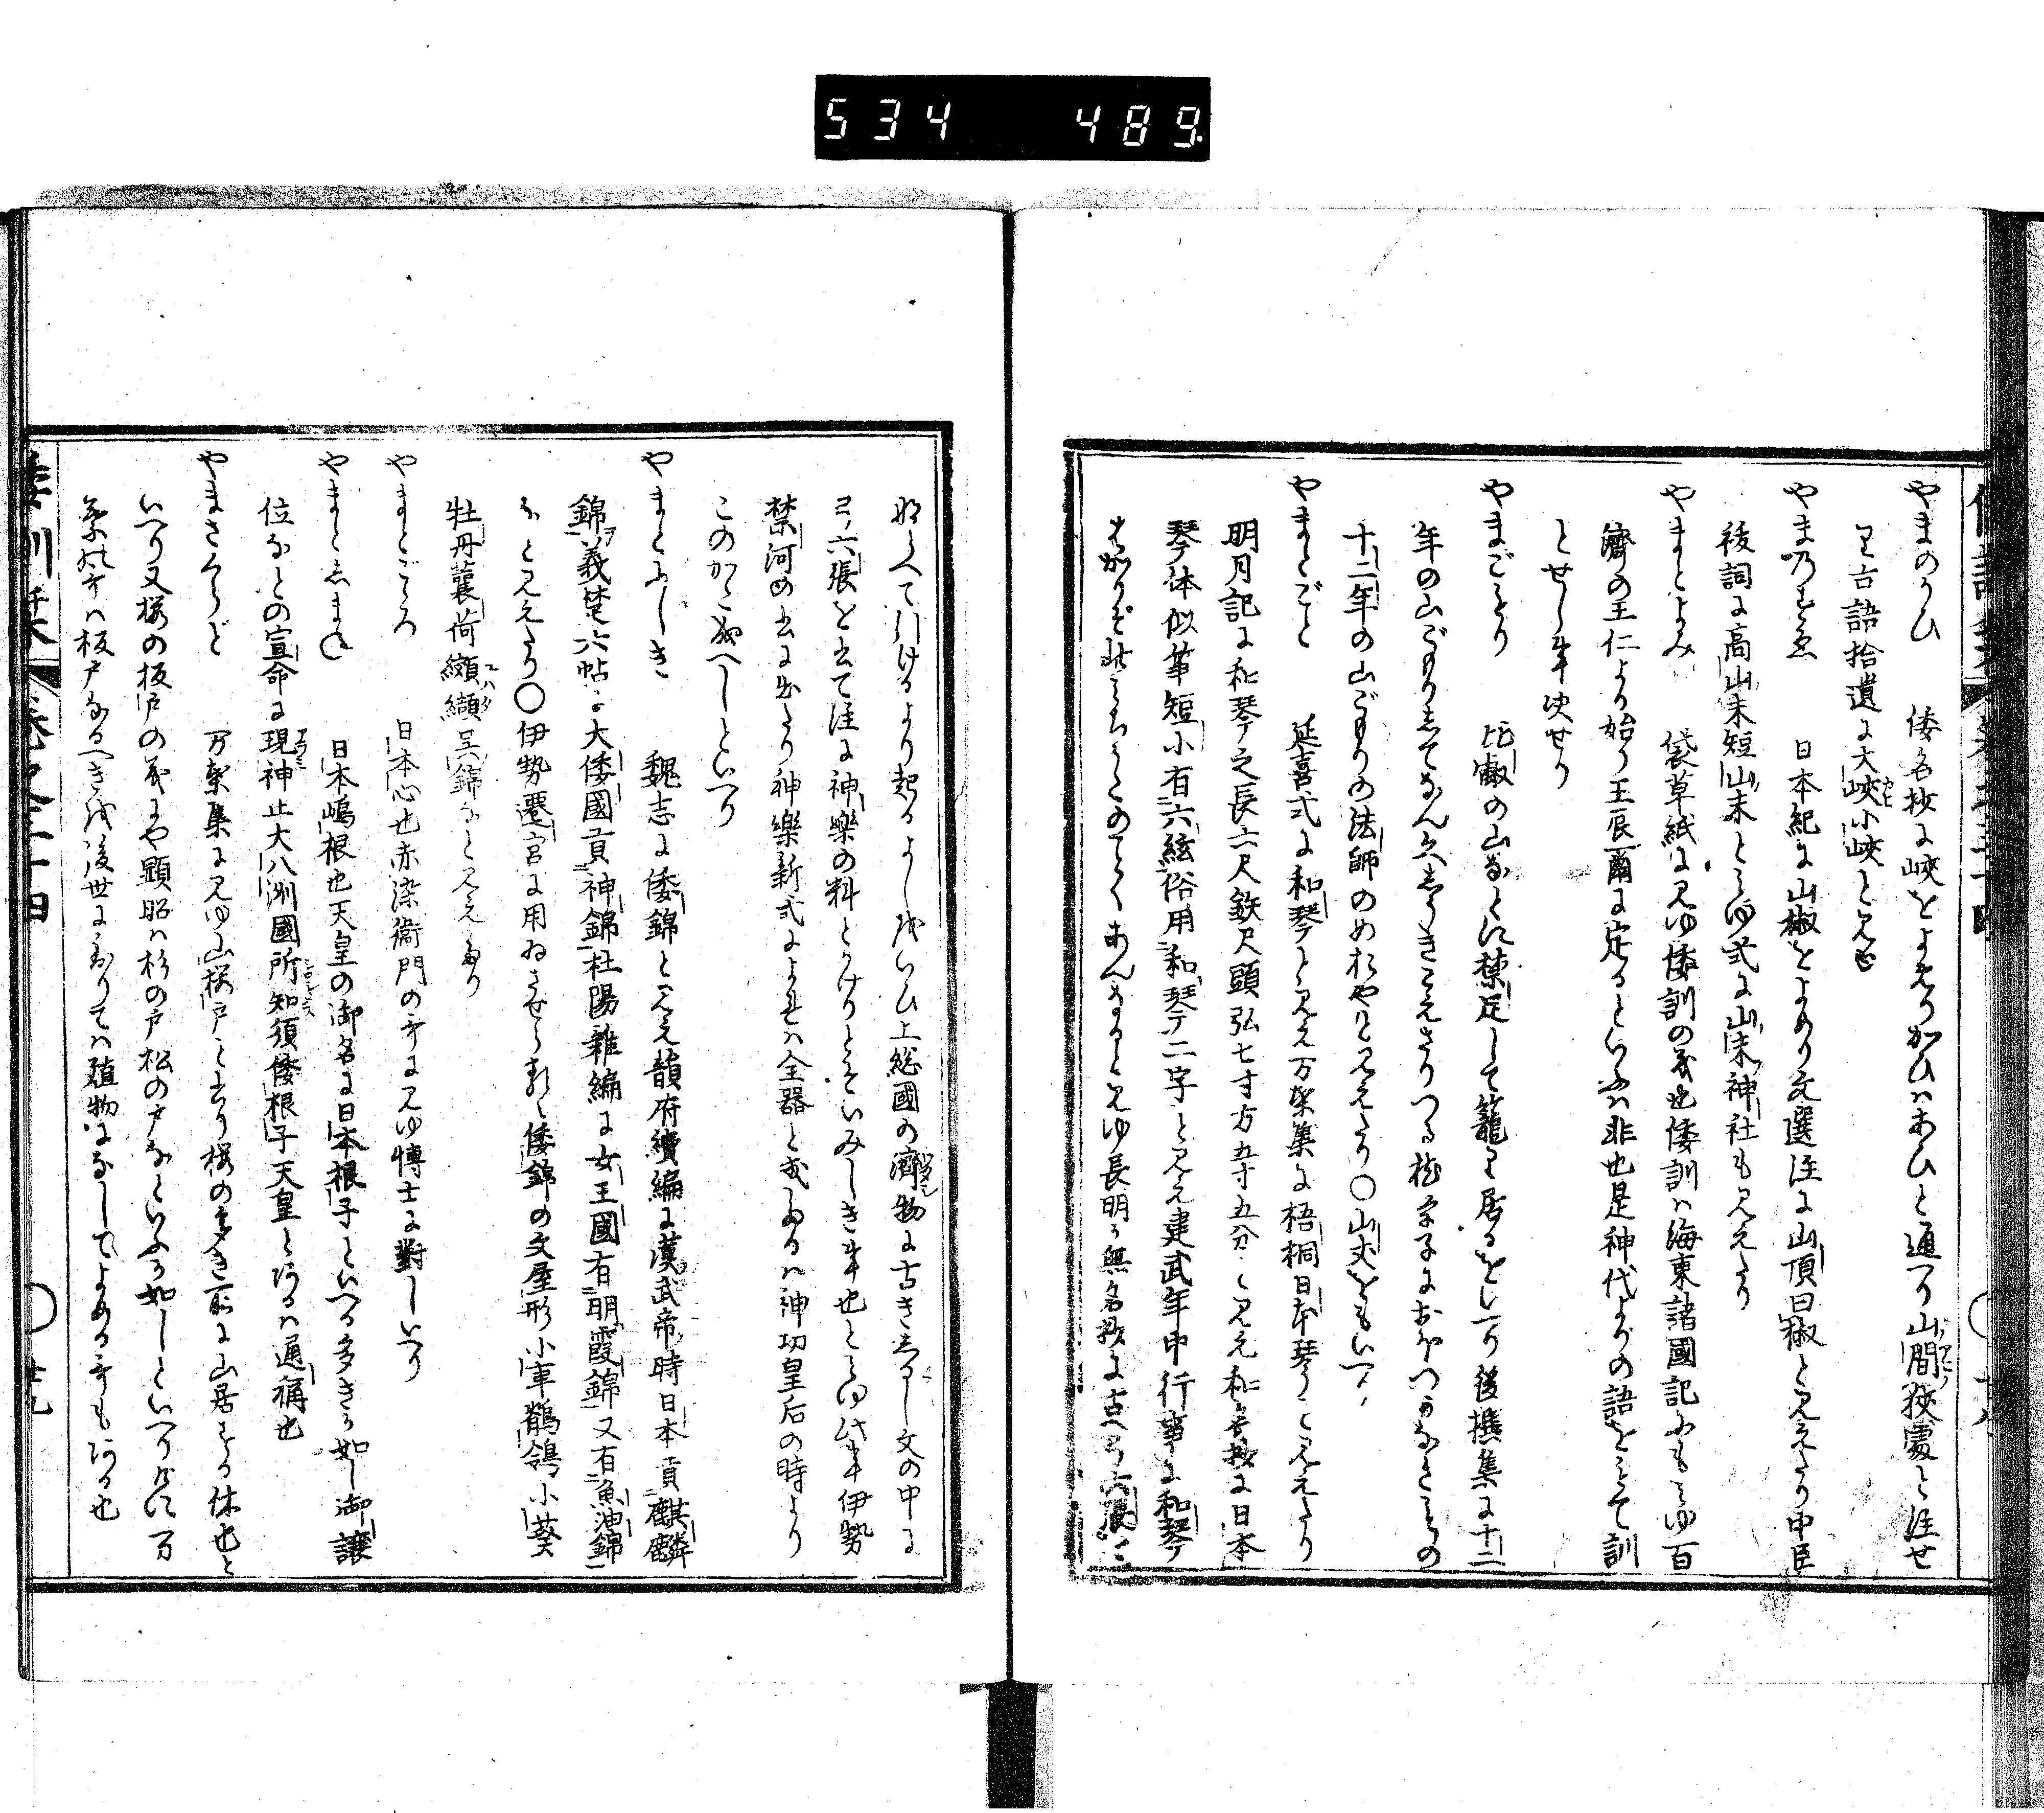 534 489
やまのかひ 倭名抄に峽をよめりかひはあひと通へり山間狹處と注せ
り古語拾遺に大峽小峽と見ゆ
やまのすゑ 日本紀に山椒をよめり文選注に山頂曰椒と見えたり中臣
祓詞に高山末短山末とみゆ式に山末神社も見えたり
やまとよみ 袋草紙に見ゆ倭訓の義也倭訓は海東諸國記にもみゆ百
濟の王仁より始り王辰爾に定るといふは非也是神代よりの語をもて訓
とせし事決せり
やまごもり 比叡の山などに禁足して籠り居るをいへり後撰集に十二
年の山ごもりしてなん久しうきこえさりつる
十二年の山ごもりの法師のめおやと見えたり○山丈をもいへり
やまとごと 延喜式に和琴と見え万葉集に梧桐日本琴と見えたり
明月記に和琴之長六尺鉄尺頭弘七寸方五寸五分と見え和名抄に日本
琴体似箏短小有六絃俗用和琴二字と見え建武年中行事に和琴
あんなると見ゆ長明無名抄に古へ弓六張
ならへて引けるより起るよしをいひ上総國の濟物に古きしるし文の中に
弓六張と出て注に神樂の料とかけりとそいみしき事也とみゆ此事伊勢
禁河の書に出たり神樂新式によれは全器と成るは神功皇后の時より
このかた成へしといへり
やまとにしき 魏志に倭錦と見え韻府續編に漢武帝時日本貢麒麟
錦義楚六帖に大倭國貢神錦杜陽雜編に女王國有明霞錦又有魚油錦
なと見えたり○伊勢遷宮に用ゐさせらるゝ倭錦の文屋形小車鶺鴒小葵
牡丹蘘荷纐纈呉錦なと見えたり
やまとごころ 日本心也赤染衞門の哥に見ゆ博士に對しいへり
やまとしまね 日本嶋根也天皇の御名に日本根子といへる多きか如し御讓
位なとの宣命に現神止大八洲國所知須倭根子天皇とあるは通稱也
やまさくらど 万葉集に見ゆ山桜戸と書り桜の多き所に山居する体也と
いへり又桜の板戸の義にや顯昭は杉の戸松の戸なといふか如しといへり此は万
葉の哥は板戸なるへきを後世に至りては殖物になしてよめる哥もある也